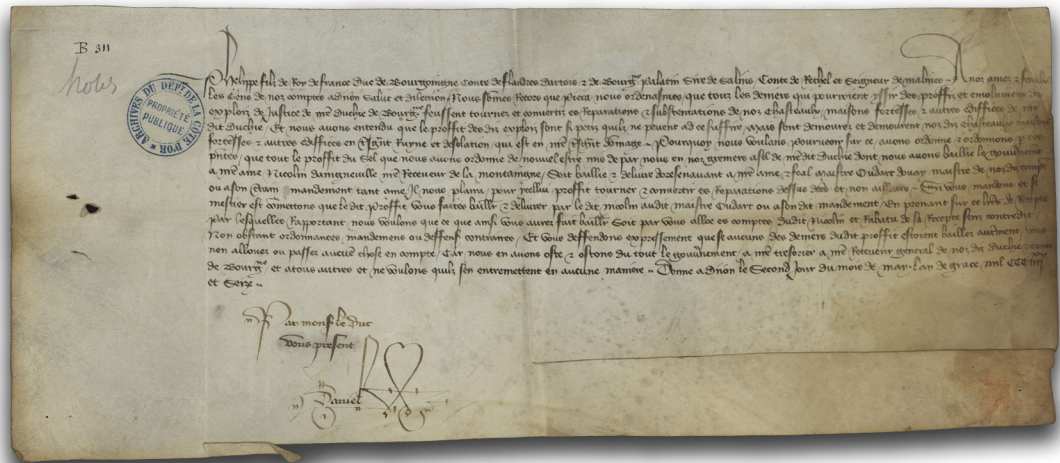 B 311
ARCHIVES DU DEPT DE LA COTE D'OR
PROPRIÉTÉ PUBLIQUE
Phelippe filz de Roy de france Duc de Bourgoingne Conte de flandres dartois et de Bourg Palatin Sire de Salins Conte de Rethel et Seigneur de malines A noz amez et feaulx
les Gens de noz comptes a dijon Salut et dilection Nous sommes Recors que pieca nous ordenasmes que touz les deniers qui pourroient yssir des proffiz et emolumens des
exploiz de Justice de nre Duchie de Bourg feussent tournez et convertiz es Reparations et substentations de noz chasteaulx maisons forteresses et autres edifices de nre
dit Duchie Et nous avons entendu que le proffit des diz exploiz sont si petiz quilz ne peuent ad ce suffire Mais sont demourez et demeurent noz diz chasteaulx maisons
forteresses et autres ediffices en Ruyne et desolation qui est en nre dommage Pourquoy nous voulans pourveoir sur ce avons ordonne et ordonnons par ces
pntes que tout le proffit du Sel que nous avons ordonne de nouvel estre mis de par nous en noz greniers a sel de nre dit Duchie dont nous avons baillie le gouvnement
a nre ame Nicolin nre Receveur de la montaigne Soit baillie et delivre doresenavant a nre ame et feal maistre Oudart douay maistre de noz diz comptes
ou a son mandement tant come Il nous plaira pour ycellui proffit tourner et convertir es Reparations dessus dictes et non ailleurs Si vous mandons et se
mestier est comettons que le dit proffit vous faites baillr et delivrer par le dit nicolin audit maistre Oudart ou a son dit mandement En prenant sur ce lettre de Recepte
par lesquelles Rapportant nous voulons que ce que ainsi vous aurez fait baillr Soit par vous alloe es comptes dudit Nicolin et Rabatu de sa Recepte sens contredit
Non obstant ordonnances mandemens ou deffenses contraires Et vous deffendons expressement que se aucuns des deniers dudit proffit estoient baillez autrement vous
nen allouez ou passez aucune chose en compte Car nous en avons oste et ostons du tout le gouvnement a nre tresorier a nre Receveur general de noz diz duchie et conte
de Bourg et a touz autres et ne voulons quilz sen entremettent en aucune maniere Donne a dijon le Second Jour du mois de may lan de grace mil CCC iiii
et Seze
Par monss le duc
vous present
Daniel